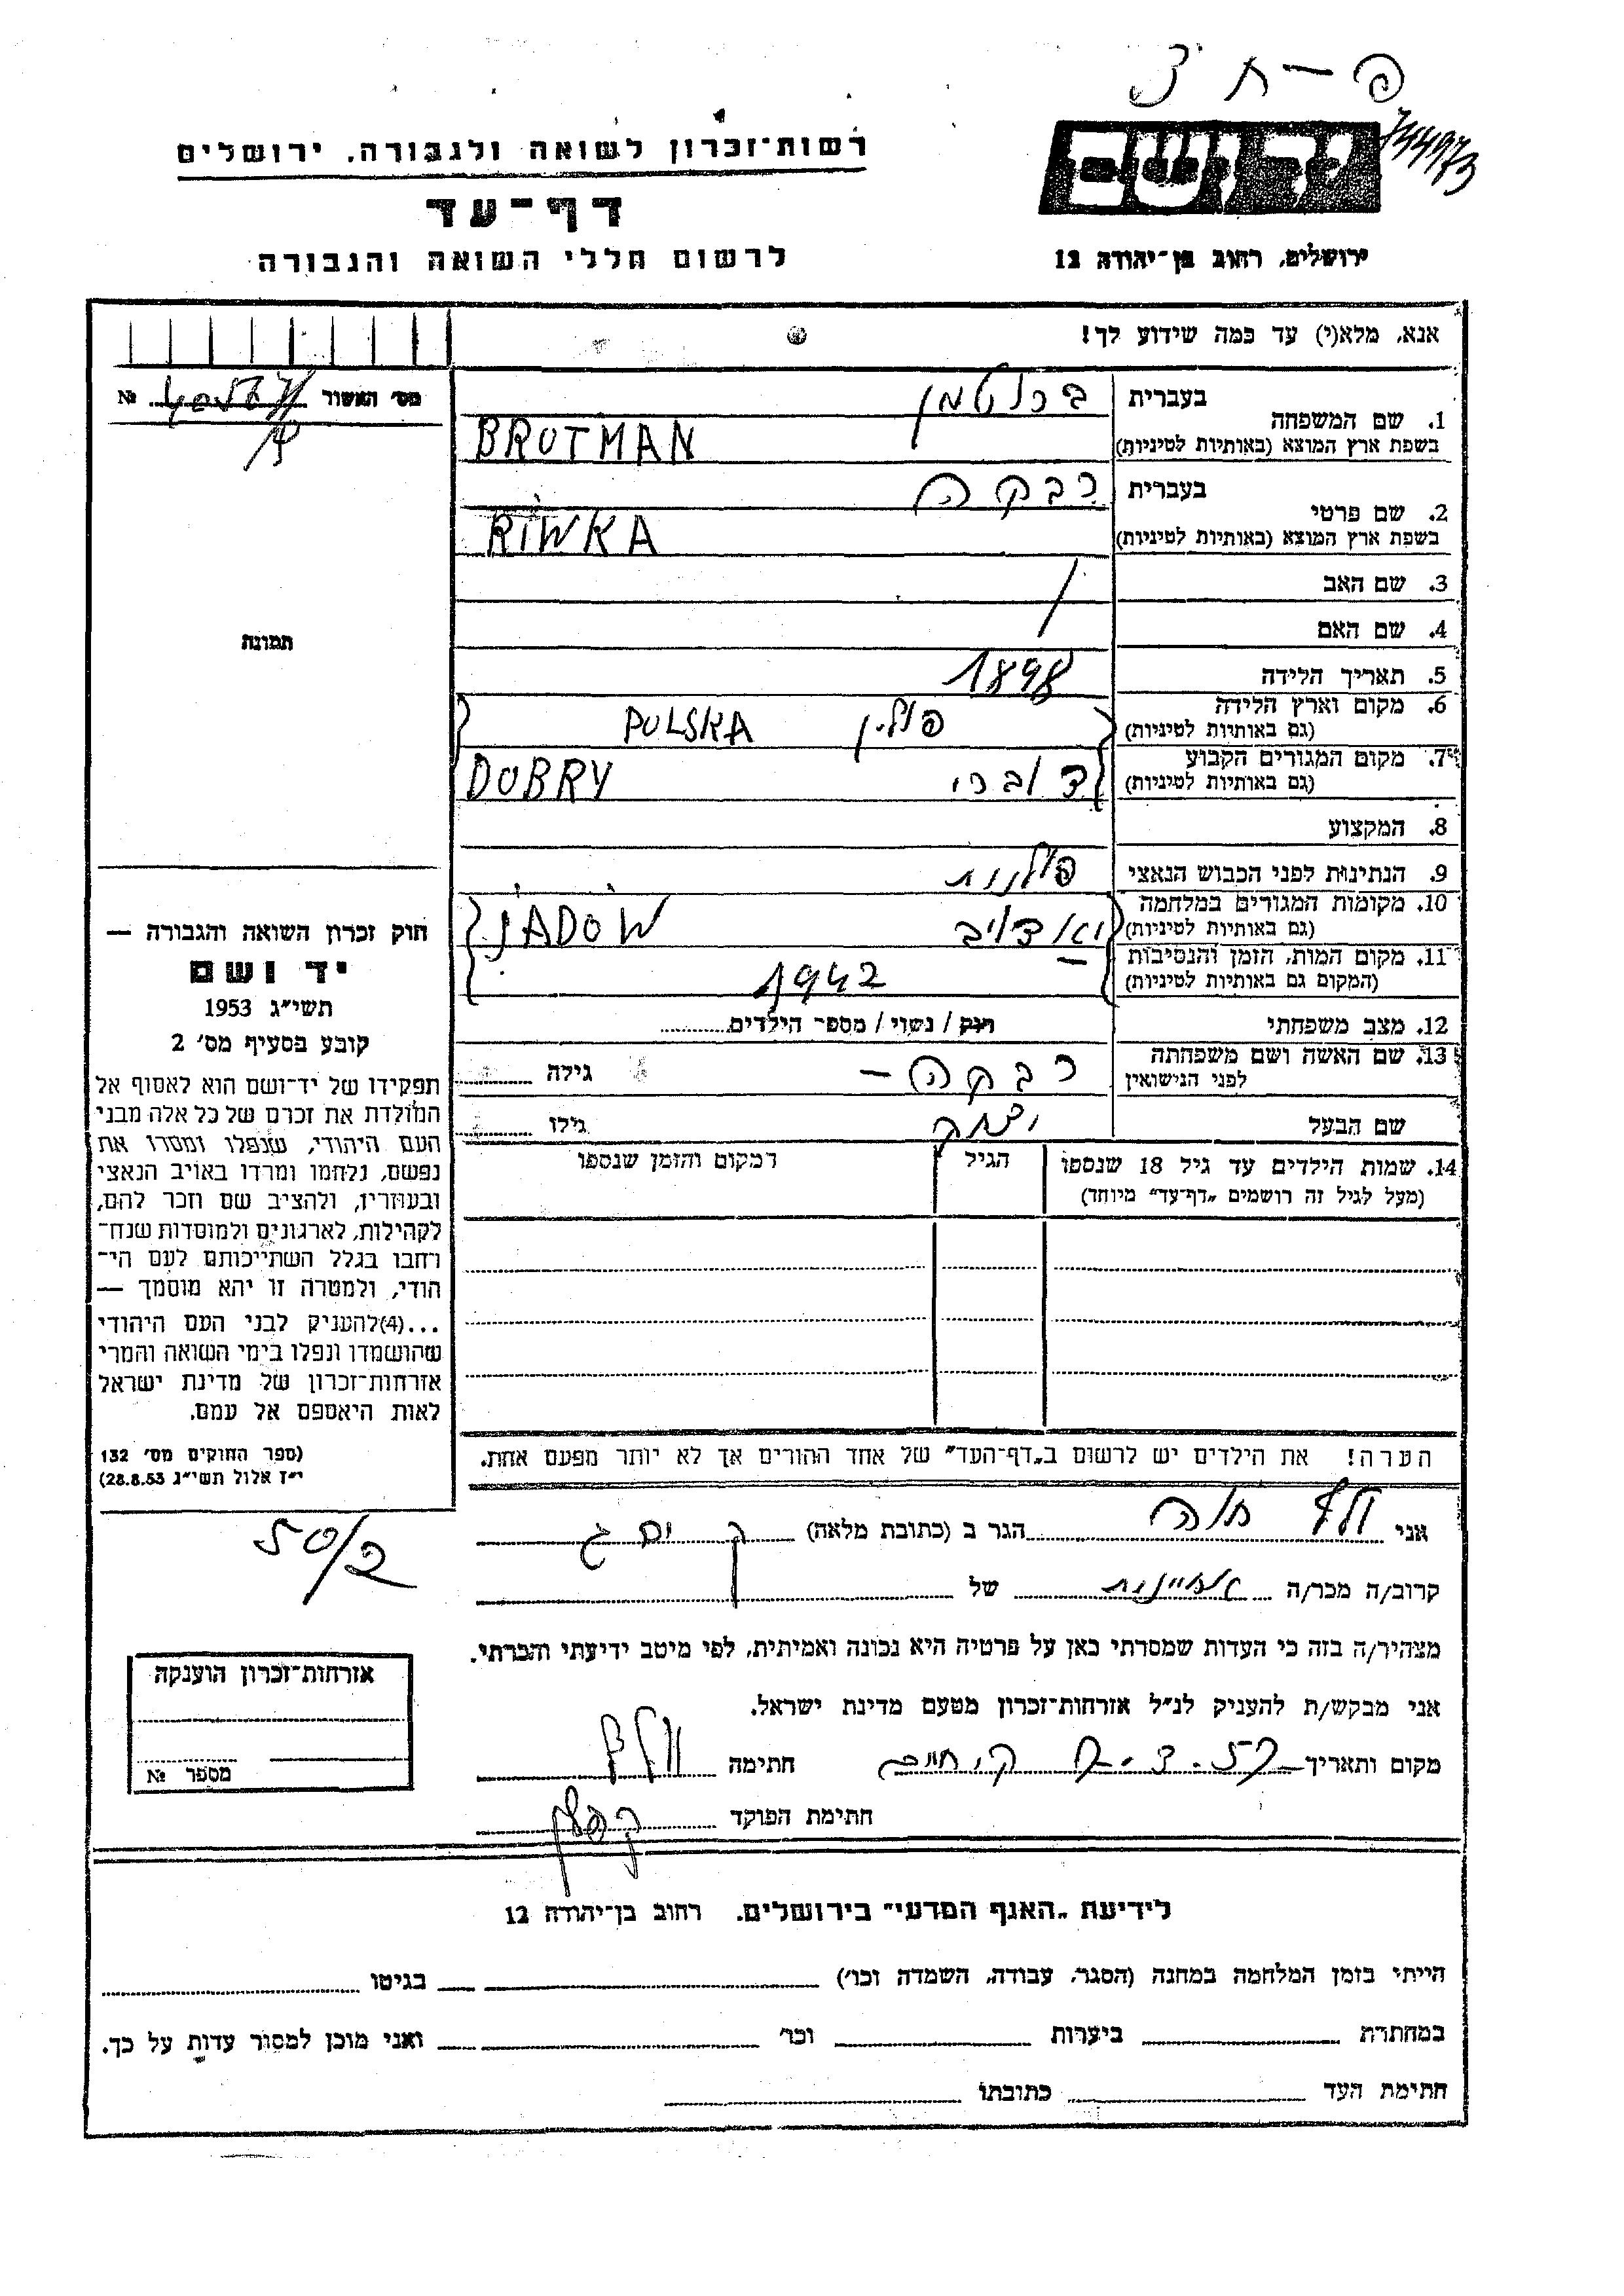 פ-ח צ
744973
יד ושם
ירושלים, רחוב בן־יהודה 12
רשות־זכרון לשואה ולגבורה, ירושלים
דף-עד
לרשום חללי השואה והגבורה
אנא, מלא(י) עד כמה שידוע לך!
מס׳ האשור № 
1. שם המשפחה
בעברית ברוטמן
בשפת ארץ המוצא (באותיות לטיניות) BROTMAN
2. שם פרטי
בעברית רבקה
בשפת ארץ המוצא (באותיות לטיניות) RIWKA
3. שם האב
4. שם האם
5. תאריך הלידה 1898
6. מקום וארץ הלידה פולין POLSKA
(גם באותיות לטיניות)
7. מקום המגורים הקבוע דוברי DOBRY
(גם באותיות לטיניות)
8. המקצוע
9. הנתינות לפני הכבוש הנאצי פולנית
10. מקומות המגורים במלחמה יאדוב JADOW
(גם באותיות לטיניות)
11. מקום המות, הזמן והנסיבות 1942
(המקום גם באותיות לטיניות)
12. מצב משפחתי רוק / נשוי / מספר הילדים
13. שם האשה ושם משפחתה רבקה – גילה
לפני הנישואין
שם הבעל יצחק גילו
14. שמות הילדים עד גיל 18 שנספו הגיל המקום והזמן שנספו
(מעל לגיל זה רושמים „דף־עד״ מיוחד)
הערה! את הילדים יש לרשום ב„דף־העד״ של אחד ההורים אך לא יותר מפעם אחת.
תמונה
חוק זכרון השואה והגבורה —
יד ושם
תשי״ג 1953
קובע בסעיף מס׳ 2
תפקידו של יד־ושם הוא לאסוף אל
המולדת את זכרם של כל אלה מבני
העם היהודי, שנפלו ומסרו את
נפשם, נלחמו ומרדו באויב הנאצי
ובעוזריו, ולהציב שם וזכר להם,
לקהילות, לארגונים ולמוסדות שנח־
רחבו בגלל השתייכותם לעם הי־
הודי, ולמטרה זו יהא מוסמך —
...(4)להעניק לבני העם היהודי
שהושמדו ונפלו בימי השואה והמרי
אזרחות־זכרון של מדינת ישראל
לאות היאספם אל עמם.
(ספר החוקים מס׳ 132
י״ז אלול תשי״ג 28.8.53)
50/2
אני וולף חוה הגר ב (כתובת מלאה)
קרוב/ה מכר/ה של
מצהיר/ה בזה כי העדות שמסרתי כאן על פרטיה היא נכונה ואמיתית, לפי מיטב ידיעתי והכרתי.
אני מבקש/ת להעניק לנ״ל אזרחות־זכרון מטעם מדינת ישראל.
מקום ותאריך חתימה וולף
חתימת הפוקד
אזרחות־זכרון הוענקה
מספר №
לידיעת „האגף המדעי״ בירושלים, רחוב בן־יהודה 12
הייתי בזמן המלחמה במחנה (הסגר, עבודה, השמדה וכו׳) בגיטו
במחתרת ביערות וכו׳ ואני מוכן למסור עדות על כך.
חתימת העד כתובתו